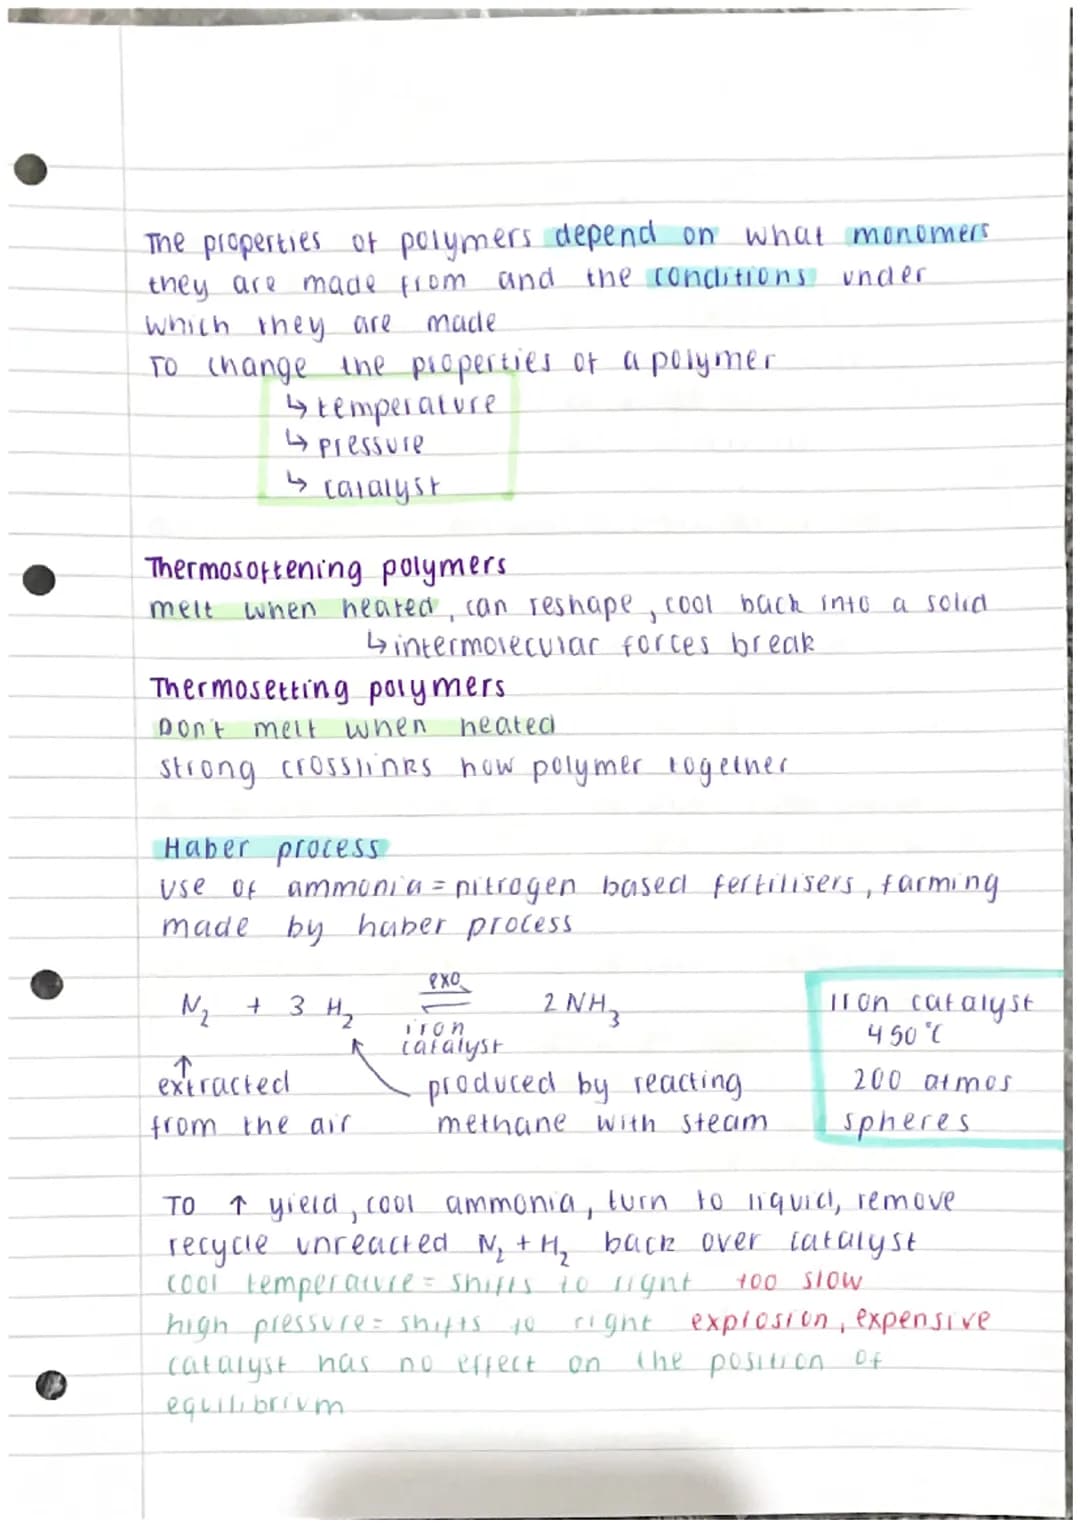 The properties of polymers depend on what monomers
they are made from and the conditions under
which they are made
To change the properties of a polymer
↳ temperature
↳ pressure
↳ catalyst
Thermosoftening polymers
melt when heated, can reshape, cool back into a solid
↳ intermolecular forces break
Thermosetting polymers
Don't melt when heated
strong crosslinks how polymer together
Haber process
use of ammonia = nitrogen based fertilisers, farming
made by haber process
N₂ + 3 H₂ exo ⇌ iron catalyst 2 NH₃
↑ extracted from the air
produced by reacting methane with steam
Iron catalyst
450°C
200 atmos
spheres
To ↑ yield, cool ammonia, turn to liquid, remove
recycle unreacted N₂ + H₂ back over catalyst
cool temperature = shifts to right too slow
high pressure = shifts to right explosion, expensive
catalyst has no effect on the position of
equilibrium